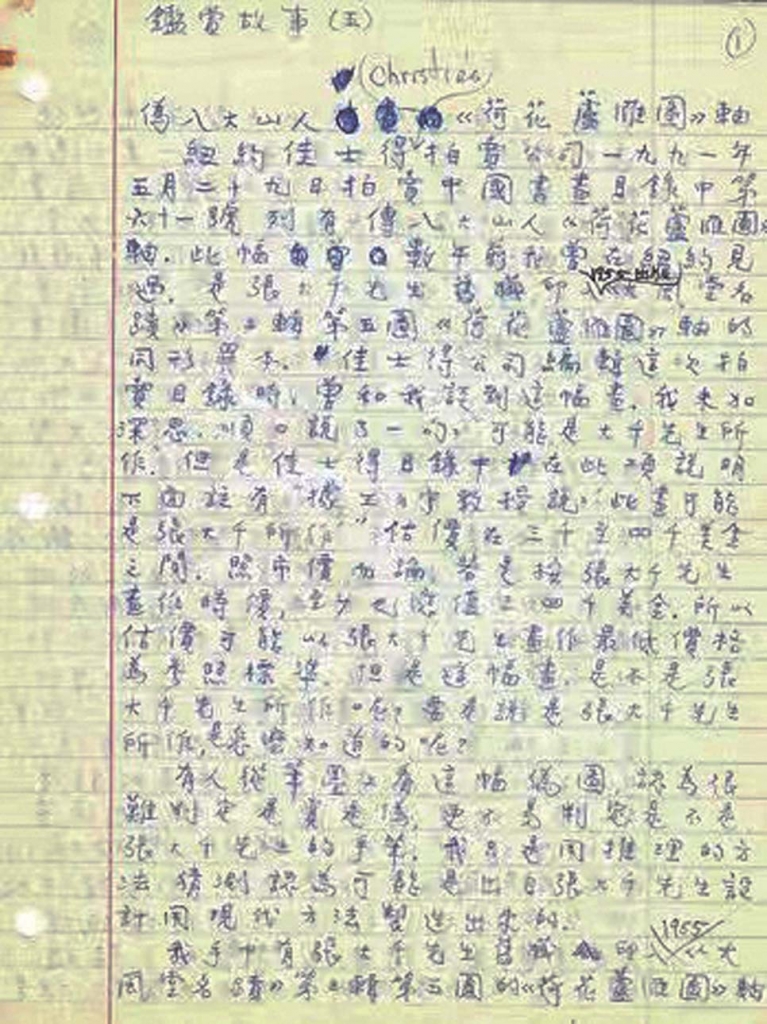 鑑賞故事（五）
①
(Christie's)
偽八大山人《荷花蘆雁圖》軸
紐約佳士得拍賣公司一九九一年
五月二十九日拍賣中國書畫目錄中第
六十一號列有傳八大山人《荷花蘆雁圖》
軸．此幅數年前我曾在紐約見
過．是張大千先生舊藏印入《大風堂名
蹟》第二輯第五圖《荷花蘆雁圖》軸的
同形異本．佳士得公司編輯這次拍
賣目錄時，曾和我談到這幅畫．我未加
深思．順口說了一句：可能是大千先生所
作．但是佳士得目錄中在此項說明
下面註有"據王教授說：此畫可能
是張大千所作"．估價在三千至四千美金
之間．照市價而論，若是按張大千先生
畫作時價，至少也應值三四千美金．所以
估價可能以張大千先生畫作最低價格
為參照標準．但是這幅畫．是不是張
大千先生所作呢？要是說是張大千先生
所作，是怎麼知道的呢？
有人從筆墨上看這幅偽圖，認為很
難判定是真是偽，更不易判定是不是
張大千先生的手筆．我只是用推理的方
法猜測認為可能是出自張大千先生設
計用現代方法製造出來的．
1955
我手中有張大千先生舊藏印入《大
風堂名蹟》第二輯第五圖的《荷花蘆雁圖》軸